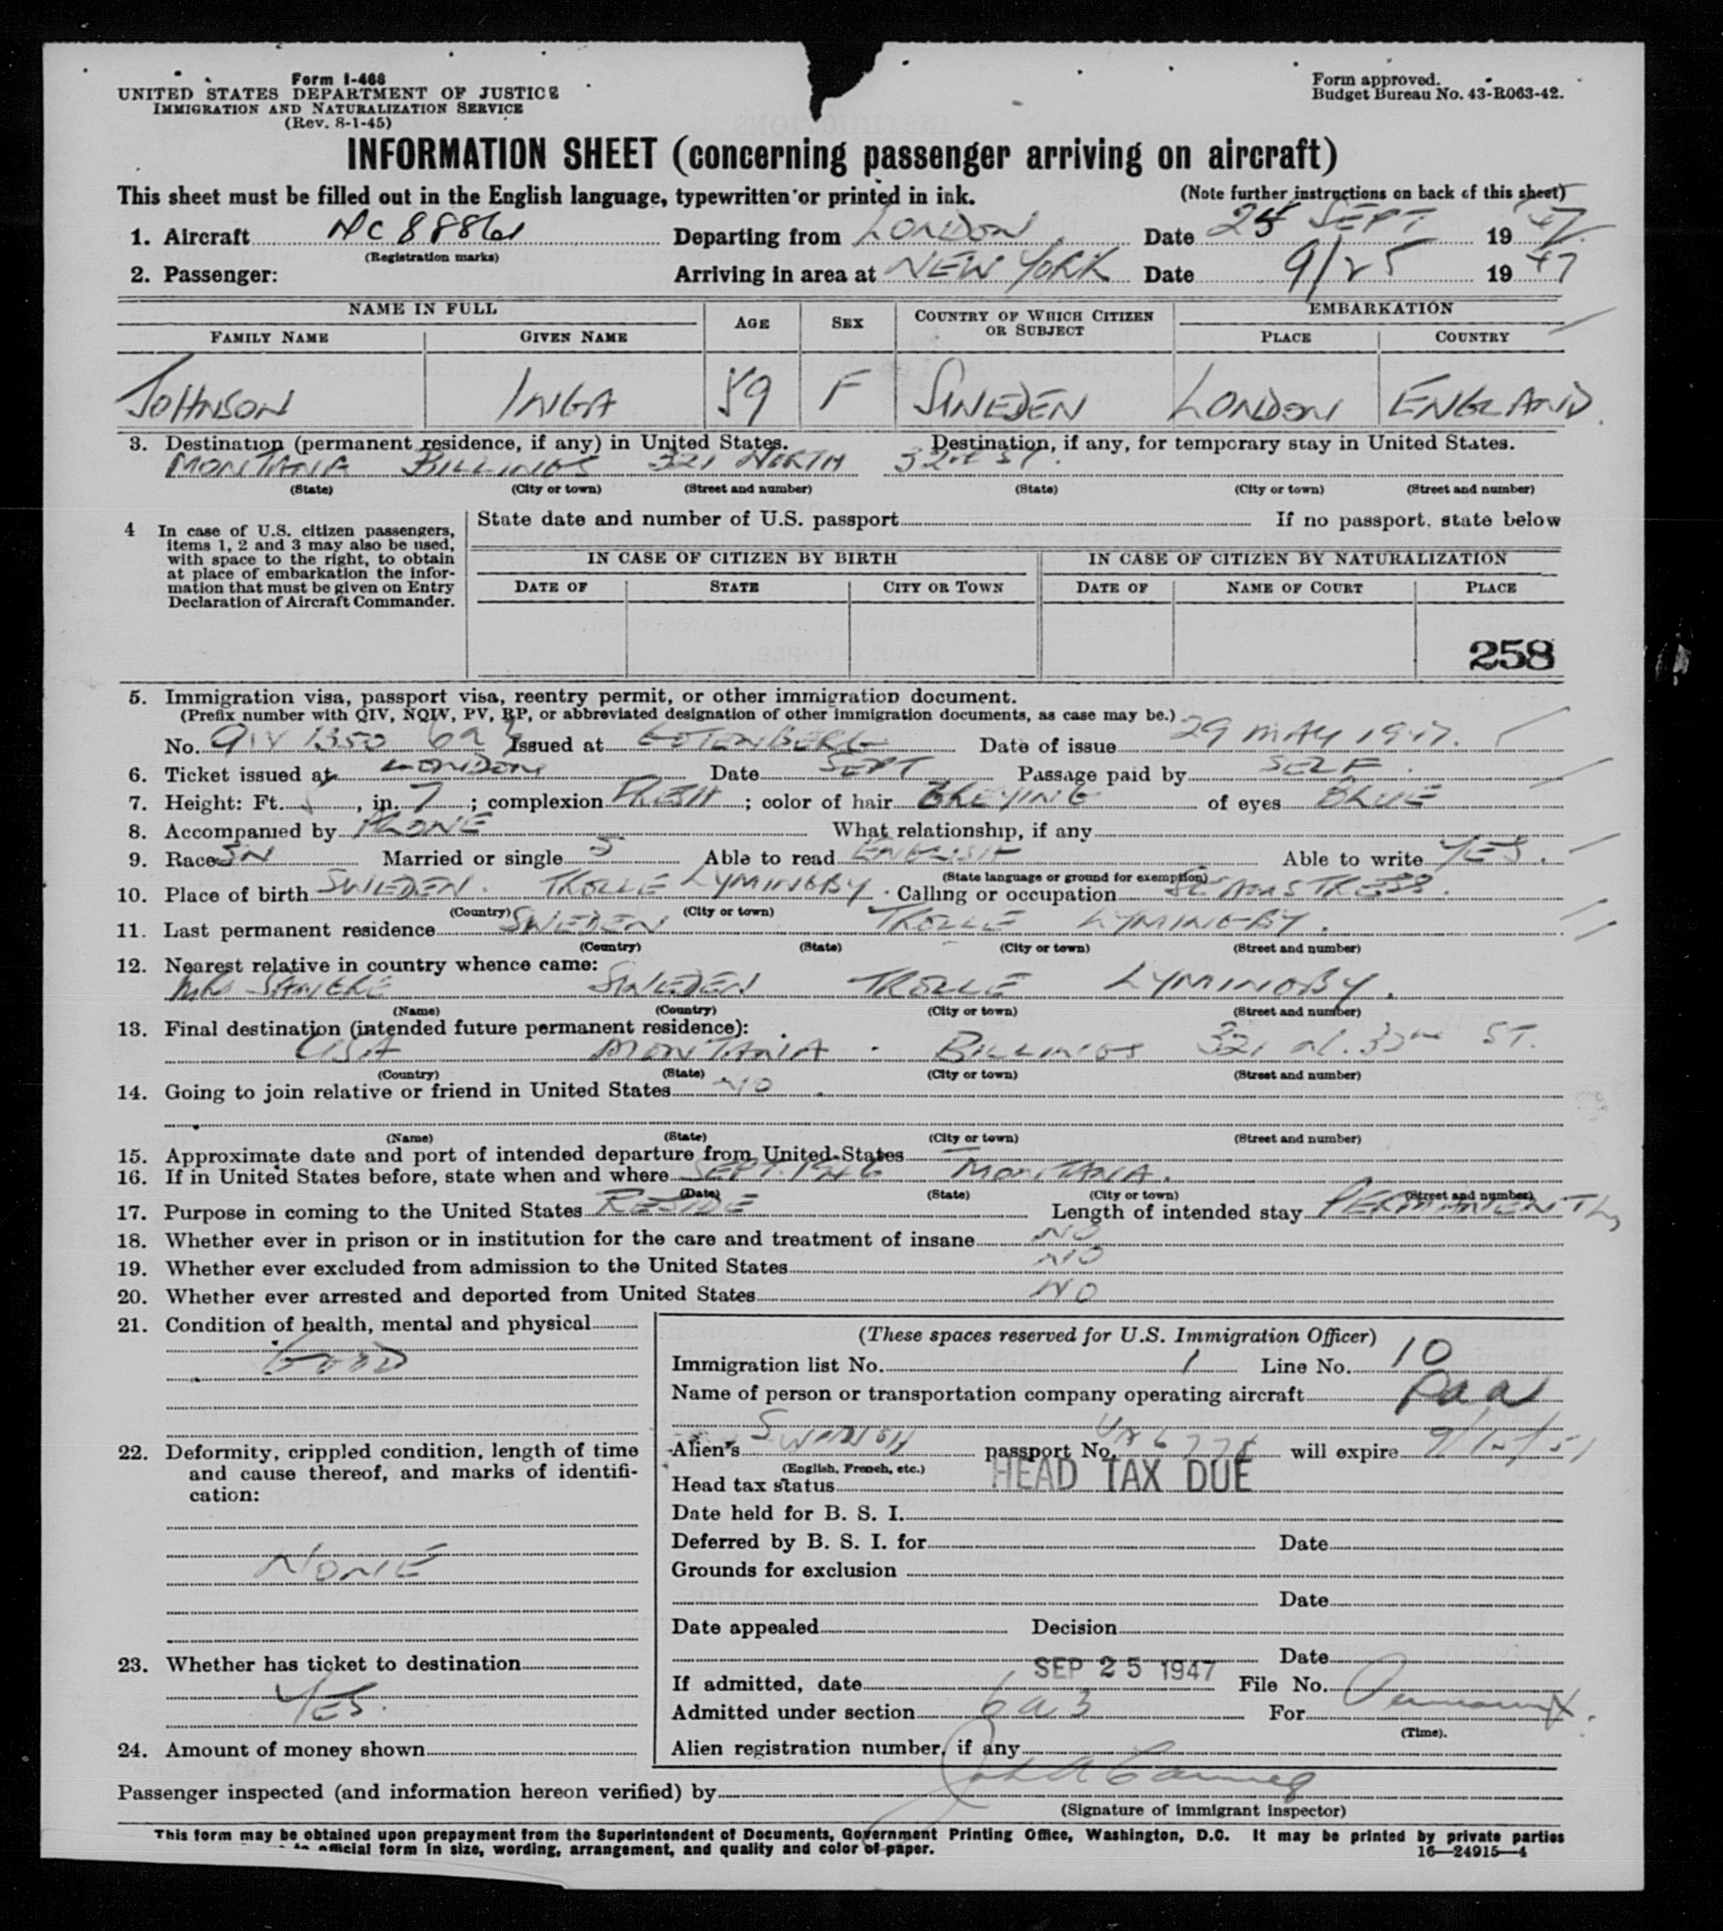 Form I-468
UNITED STATES DEPARTMENT OF JUSTICE
IMMIGRATION AND NATURALIZATION SERVICE
(Rev. 8-1-45)
Form approved.
Budget Bureau No. 43-R063-42.
INFORMATION SHEET (concerning passenger arriving on aircraft)
This sheet must be filled out in the English language, typewritten or printed in ink. (Note further instructions on back of this sheet)
1. Aircraft NC 88861 Departing from LONDON Date 25 SEPT 1947
(Registration marks)
2. Passenger: Arriving in area at NEW YORK Date 9/25 1947
NAME IN FULL AGE SEX COUNTRY OF WHICH CITIZEN OR SUBJECT EMBARKATION
FAMILY NAME GIVEN NAME PLACE COUNTRY
JOHNSON INGA 59 F SWEDEN LONDON ENGLAND
3. Destination (permanent residence, if any) in United States. Destination, if any, for temporary stay in United States.
MONTANA BILLINGS 321 NORTH 32nd ST.
(State) (City or town) (Street and number) (State) (City or town) (Street and number)
4 In case of U.S. citizen passengers, items 1, 2 and 3 may also be used, with space to the right, to obtain at place of embarkation the information that must be given on Entry Declaration of Aircraft Commander.
State date and number of U.S. passport If no passport, state below
IN CASE OF CITIZEN BY BIRTH IN CASE OF CITIZEN BY NATURALIZATION
DATE OF STATE CITY OR TOWN DATE OF NAME OF COURT PLACE
258
5. Immigration visa, passport visa, reentry permit, or other immigration document.
(Prefix number with QIV, NQIV, PV, RP, or abbreviated designation of other immigration documents, as case may be.)
No. QIV 1350 6a3 Issued at GOTENBERG Date of issue 29 MAY 1947.
6. Ticket issued at LONDON Date SEPT Passage paid by SELF.
7. Height: Ft. 5, in. 7; complexion FRESH; color of hair GREYING of eyes BLUE
8. Accompanied by NONE What relationship, if any
9. Race SN Married or single S Able to read ENGLISH Able to write YES.
(State language or ground for exemption)
10. Place of birth SWEDEN. TROLLE LYMINGBY. Calling or occupation SEAMSTRESS.
(Country) (City or town)
11. Last permanent residence SWEDEN TROLLE LYMINGBY.
(Country) (State) (City or town) (Street and number)
12. Nearest relative in country whence came:
SWEDEN TROLLE LYMINGBY.
(Name) (Country) (City or town) (Street and number)
13. Final destination (intended future permanent residence):
USA MONTANA. BILLINGS 321 N. 32nd ST.
(Country) (State) (City or town) (Street and number)
14. Going to join relative or friend in United States NO
(Name) (State) (City or town) (Street and number)
15. Approximate date and port of intended departure from United States —
16. If in United States before, state when and where SEPT. 1946 MONTANA.
(Date) (State) (City or town) (Street and number)
17. Purpose in coming to the United States RESIDE Length of intended stay PERMANENTLY
18. Whether ever in prison or in institution for the care and treatment of insane NO
19. Whether ever excluded from admission to the United States NO
20. Whether ever arrested and deported from United States NO
21. Condition of health, mental and physical
GOOD
22. Deformity, crippled condition, length of time and cause thereof, and marks of identification:
NONE
23. Whether has ticket to destination
YES.
24. Amount of money shown
(These spaces reserved for U.S. Immigration Officer)
Immigration list No. 1 Line No. 10
Name of person or transportation company operating aircraft Paa
Alien's SWEDISH passport No. will expire
(English, French, etc.)
Head tax status HEAD TAX DUE
Date held for B. S. I.
Deferred by B. S. I. for Date
Grounds for exclusion
Date
Date appealed Decision
Date
If admitted, date SEP 25 1947 File No.
Admitted under section 6a3 For Permanent.
(Time).
Alien registration number, if any
Passenger inspected (and information hereon verified) by
(Signature of immigrant inspector)
This form may be obtained upon prepayment from the Superintendent of Documents, Government Printing Office, Washington, D.C. It may be printed by private parties
official form in size, wording, arrangement, and quality and color of paper. 16—24915—4